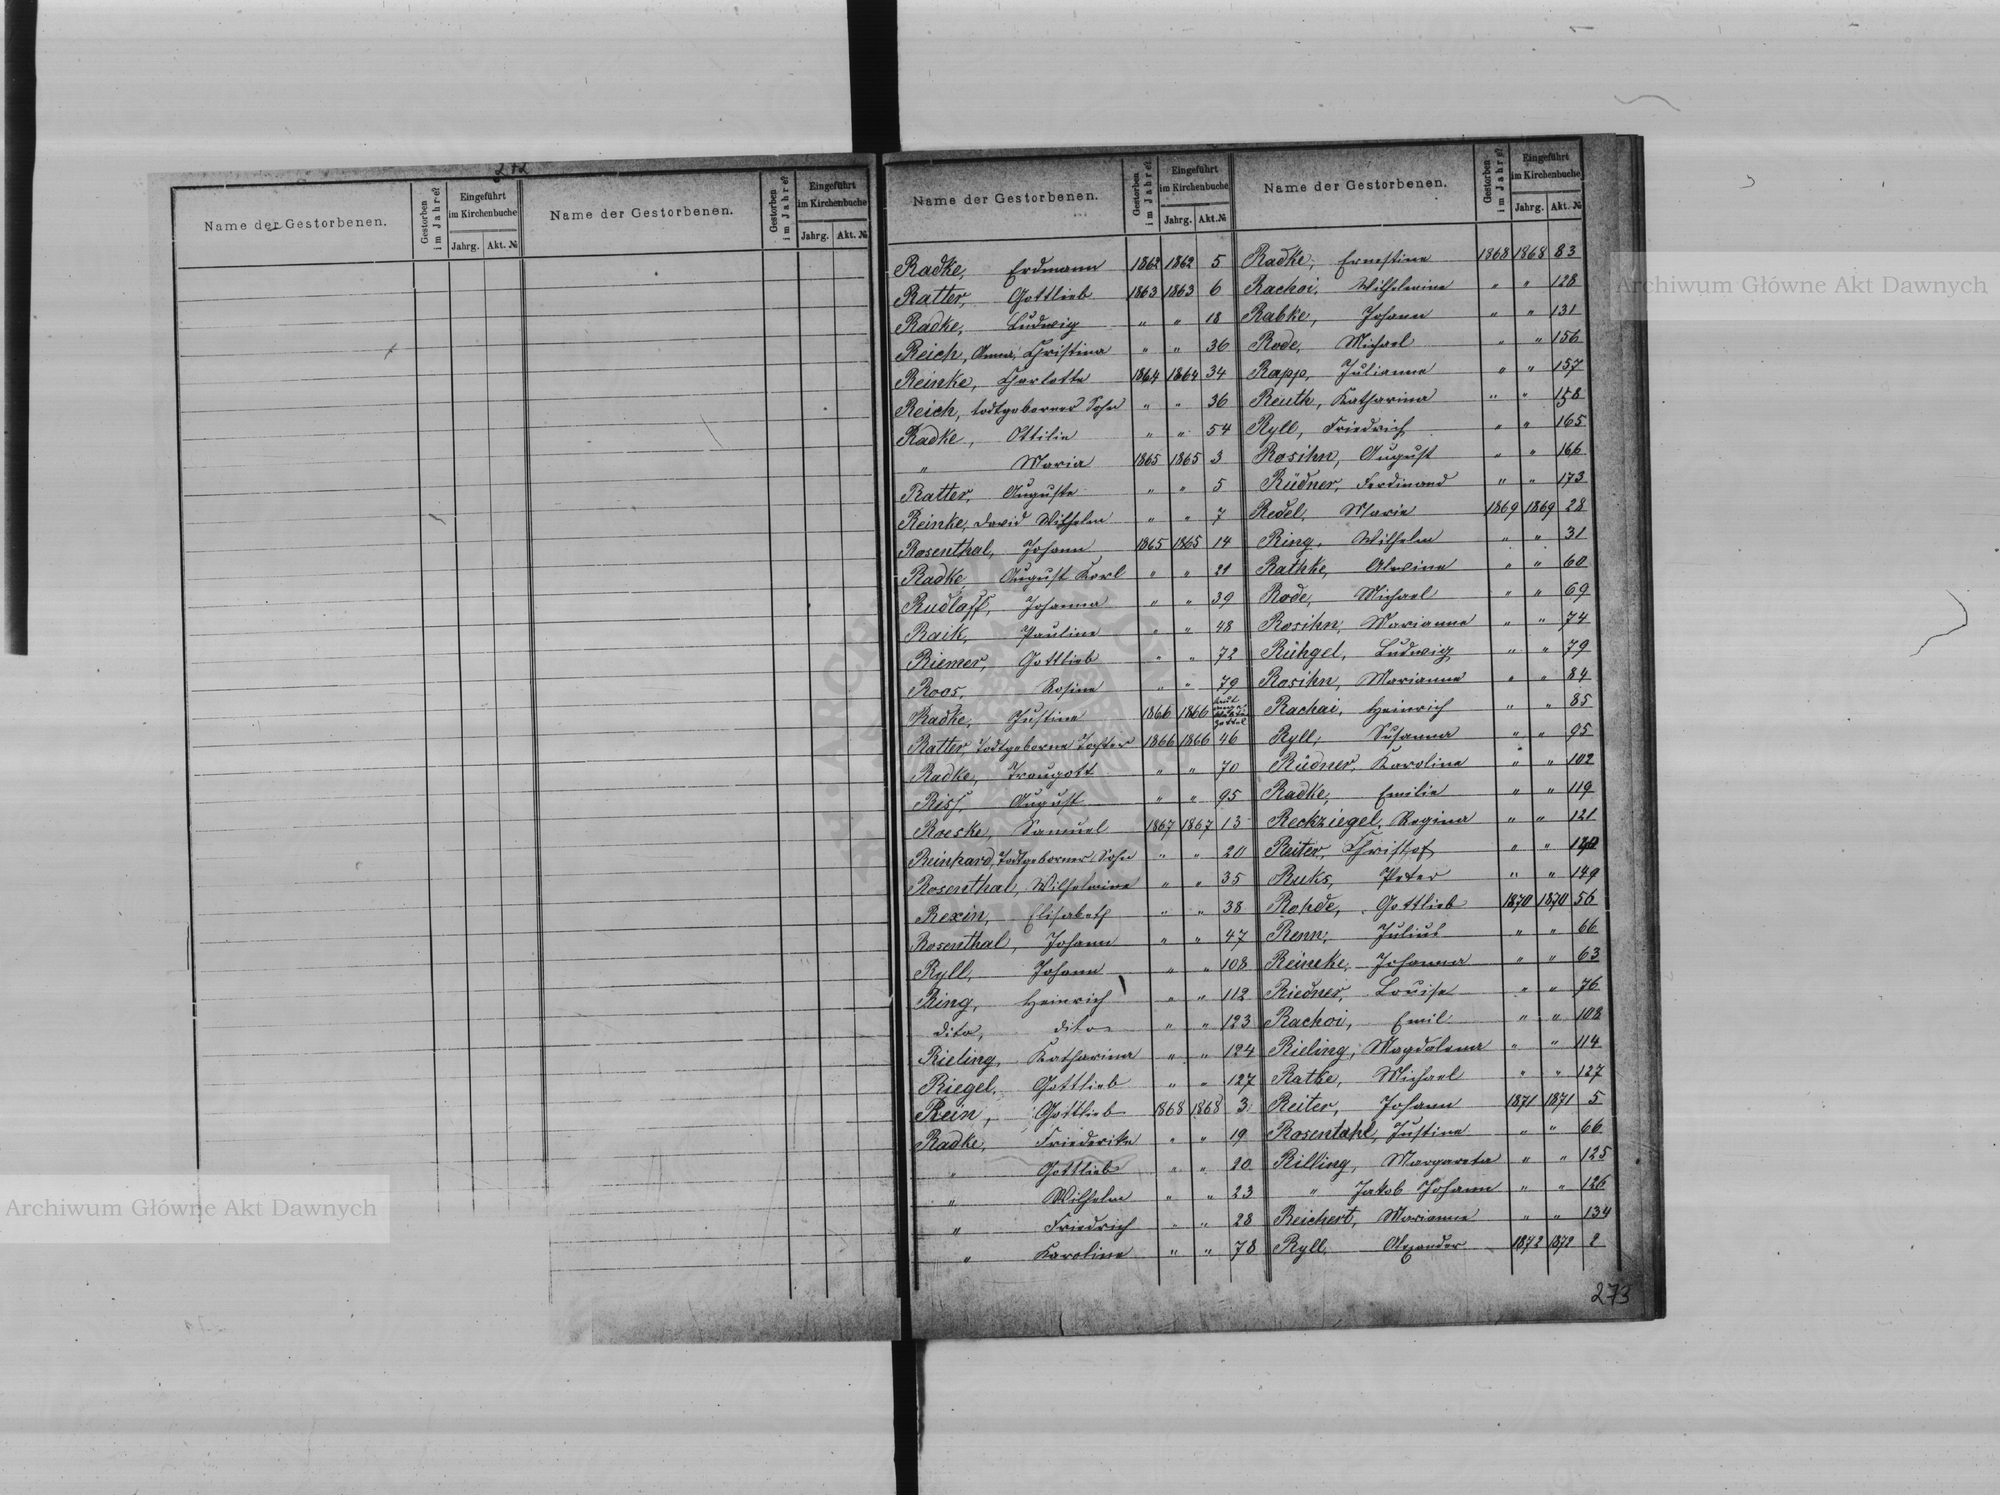 272
Name der Gestorbenen. Gestorben im Jahre? Eingeführt im Kirchenbuche Jahrg. Akt. № Name der Gestorbenen. Gestorben im Jahre? Eingeführt im Kirchenbuche Jahrg. Akt. №
Name der Gestorbenen. Gestorben im Jahre? Eingeführt im Kirchenbuche Jahrg. Akt. №
Radke, Erdmann 1862 1862 5
Ratter, Gottlieb 1863 1863 6
Radke, Ludwig " " 18
Reich, Anna Christina " " 36
Reinke, Charlotte 1864 1864 34
Reich, todtgeborner Sohn " " 36
Radke, Ottilie " " 54
" Maria 1865 1865 3
Ratter, Auguste " " 5
Reinke, David Wilhelm " " 7
Rosenthal, Johann 1865 1865 14
Radke, August Karl " " 21
Rudlaff, Johanna " " 39
Raik, Pauline " " 48
Riemer, Gottlieb " " 72
Roos, Rosine " " 79
Radke, Justine 1866 1866
Ratter, todtgeborne Tochter 1866 1866 46
Radke, Traugott " " 70
Riss, August " " 95
Roeske, Samuel 1867 1867 13
Reinhard, todtgeborner Sohn " " 20
Rosenthal, Wilhelmine " " 35
Rexin, Elisabeth " " 38
Rosenthal, Johann " " 47
Ryll, Johann " " 108
Ring, Heinrich " " 112
dito, dito " " 123
Rieling, Katharina " " 124
Riegel, Gottlieb " " 127
Rein, Gottlieb 1868 1868 3
Radke, Friederike " " 19
" Gottlieb " " 20
" Wilhelm " " 23
" Friedrich " " 28
" Karoline " " 78
Name der Gestorbenen. Gestorben im Jahre? Eingeführt im Kirchenbuche Jahrg. Akt. №
Radke, Ernestine 1868 1868 83
Rachoi, Wilhelmine " " 128
Rabke, Johann " " 131
Rode, Michael " " 156
Rapp, Julianne " " 157
Reuth, Katharina " " 158
Ryll, Friedrich " " 165
Rosihn, August " " 166
Rüdner, Ferdinand " " 173
Redel, Marie 1869 1869 28
Ring, Wilhelm " " 31
Rathke, Alwine " " 60
Rode, Michael " " 69
Rosihn, Marianne " " 74
Rühgel, Ludwig " " 79
Rosihn, Marianne " " 84
Rachai, Heinrich " " 85
Ryll, Susanna " " 95
Rüdner, Karoline " " 102
Radke, Emilie " " 119
Reckziegel, Regina " " 121
Reiter, Christof " "
Ruks, Peter " " 149
Rohde, Gottlieb 1870 1870 56
Renn, Julius " " 66
Reineke, Johanna " " 63
Riedner, Louise " " 76
Rachoi, Emil " " 108
Rieling, Magdalena " " 114
Ratke, Michael " " 127
Reiter, Johann 1871 1871 5
Rosentahl, Justine " " 66
Rilling, Margareta " " 125
" Jakob Johann " " 126
Reichert, Marianne " " 134
Ryll, Alexander 1872 1872 2
273
Archiwum Główne Akt Dawnych
Archiwum Główne Akt Dawnych